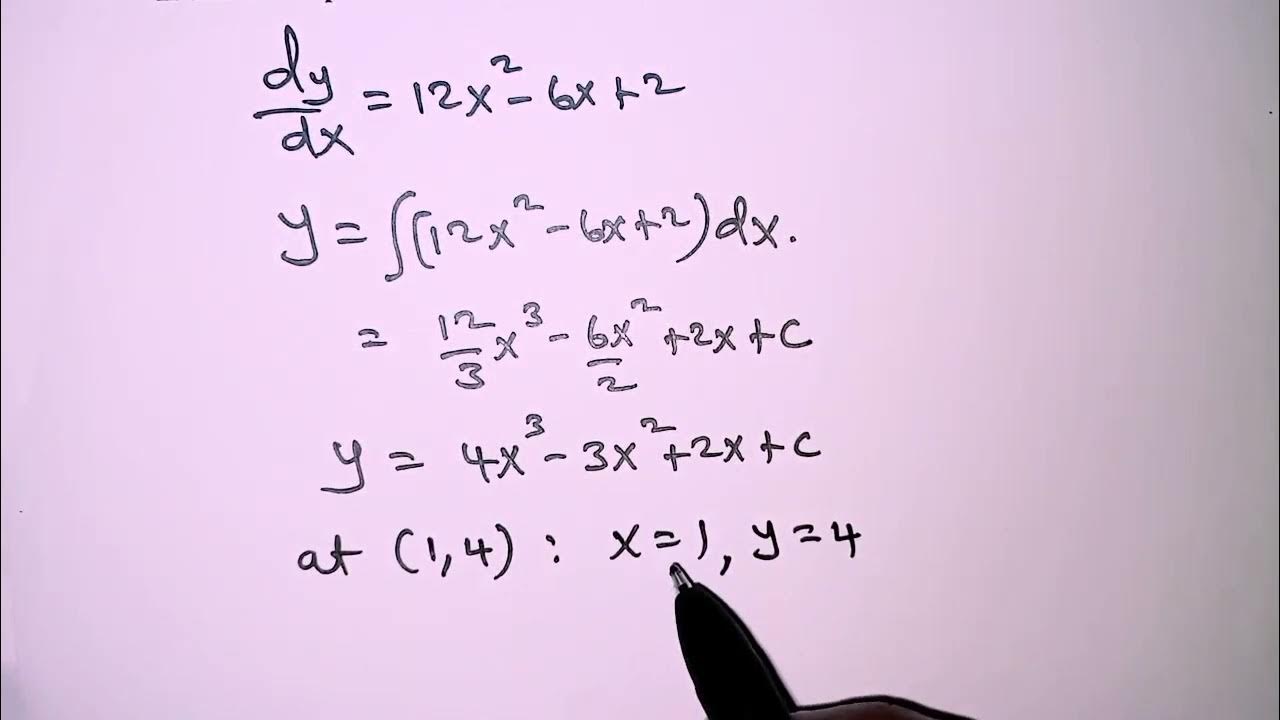 dy/dx = 12x² - 6x + 2
y = ∫(12x² - 6x + 2)dx.
= 12/3 x³ - 6x²/2 + 2x + c
y = 4x³ - 3x² + 2x + c
at (1,4) : x = 1, y = 4